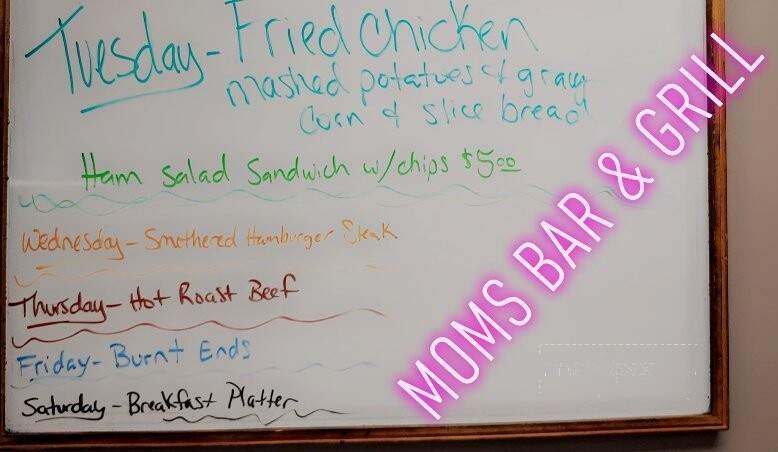 Tuesday - Fried Chicken
mashed potatoes & gravy
Corn & slice bread
Ham Salad Sandwich w/chips $5.00
Wednesday - Smothered Hamburger Steak
Thursday - Hot Roast Beef
Friday - Burnt Ends
Saturday - Breakfast Platter
MOMS BAR & GRILL